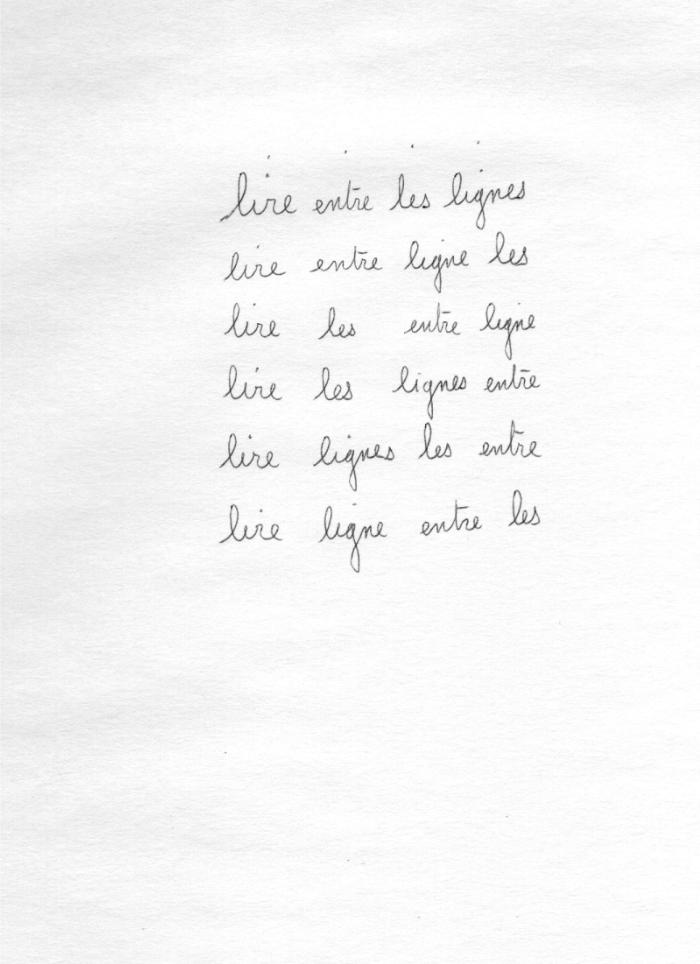 lire entre les lignes
lire entre ligne les
lire les entre ligne
lire les lignes entre
lire lignes les entre
lire ligne entre les